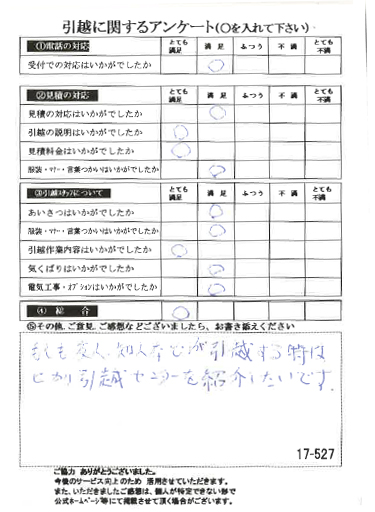 引越に関するアンケート(○を入れて下さい)
①電話の対応 とても満足 満足 ふつう 不満 とても不満
受付での対応はいかがでしたか ○
②見積の対応 とても満足 満足 ふつう 不満 とても不満
見積の対応はいかがでしたか ○
引越の説明はいかがでしたか ○
見積料金はいかがでしたか ○
服装・マナー・言葉づかいはいかがでしたか ○
③引越スタッフについて とても満足 満足 ふつう 不満 とても不満
あいさつはいかがでしたか ○
服装・マナー・言葉づかいはいかがでしたか ○
引越作業内容はいかがでしたか ○
気くばりはいかがでしたか ○
電気工事・オプションはいかがでしたか ○
④ 総合 ○
⑤その他、ご意見、ご感想などございましたら、お書き添えください
友人、知人などが引越する時は
ヒカリ引越センターを紹介したいです。
17-527
ご協力 ありがとうございました。
今後のサービス向上のため 活用させていただきます。
また、いただきましたご感想は、個人が特定できない形で
公式ホームページ等にて掲載させて頂く場合がございます。